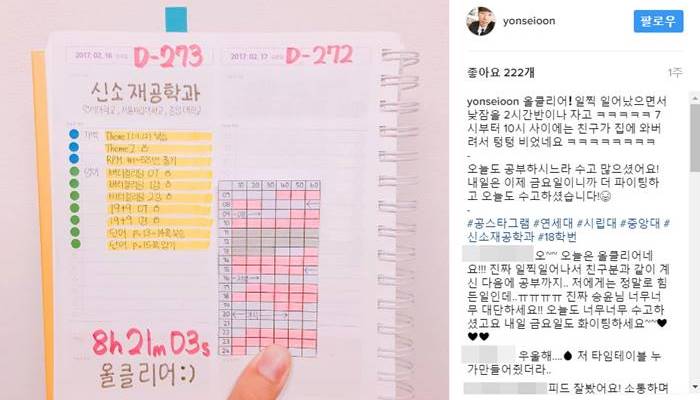 2017. 02. 16
D-273
2017. 02. 17
D-272
신소재공학과
연세대학교, 서울시립대학교, 중앙대학교
Theme 2
단어 p.13~14 복습
단어 p.15 외우기
10 20 30 40 50 60
8h 21m 03s
올클리어:)
yonseioon
팔로우
좋아요 222개
1주
yonseioon 올클리어! 일찍 일어났으면서
낮잠을 2시간반이나 자고 ㅋㅋㅋㅋㅋ 7
시부터 10시 사이에는 친구가 집에 와버
려서 텅텅 비었네요 ㅋㅋㅋㅋㅋㅋㅋㅋ
-
오늘도 공부하시느라 수고 많으셨어요!
내일은 이제 금요일이니까 더 파이팅하
고 오늘도 수고하셨습니다!😊
-
#공스타그램 #연세대 #시립대 #중앙대 #
신소재공학과 #18학번
오~~ 오늘은 올클리어네
요!!! 진짜 일찍일어나서 친구분과 같이 계
신 다음에 공부까지.. 저에게는 정말로 힘
든일인데..ㅠㅠㅠㅠ 진짜 승윤님 너무너
무 대단하세요!! 오늘도 너무너무 수고하
셨고요 내일 금요일도 화이팅하세요~~♥
♥♥
우울해....💧 저 타임테이블 누
가만들어줬더라..
피드 잘봤어요! 소통하며